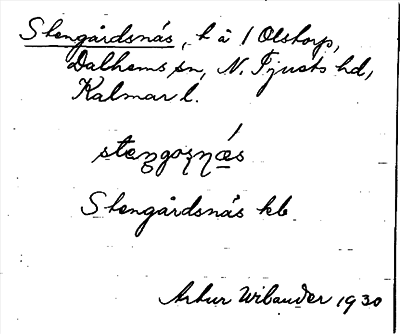 Stengårdsnäs, t å 1 Olstorp,
Dalhems sn, N. Tjusts hd,
Kalmar l.
Stengårdsnäs kb
Artur Wibauder 1930